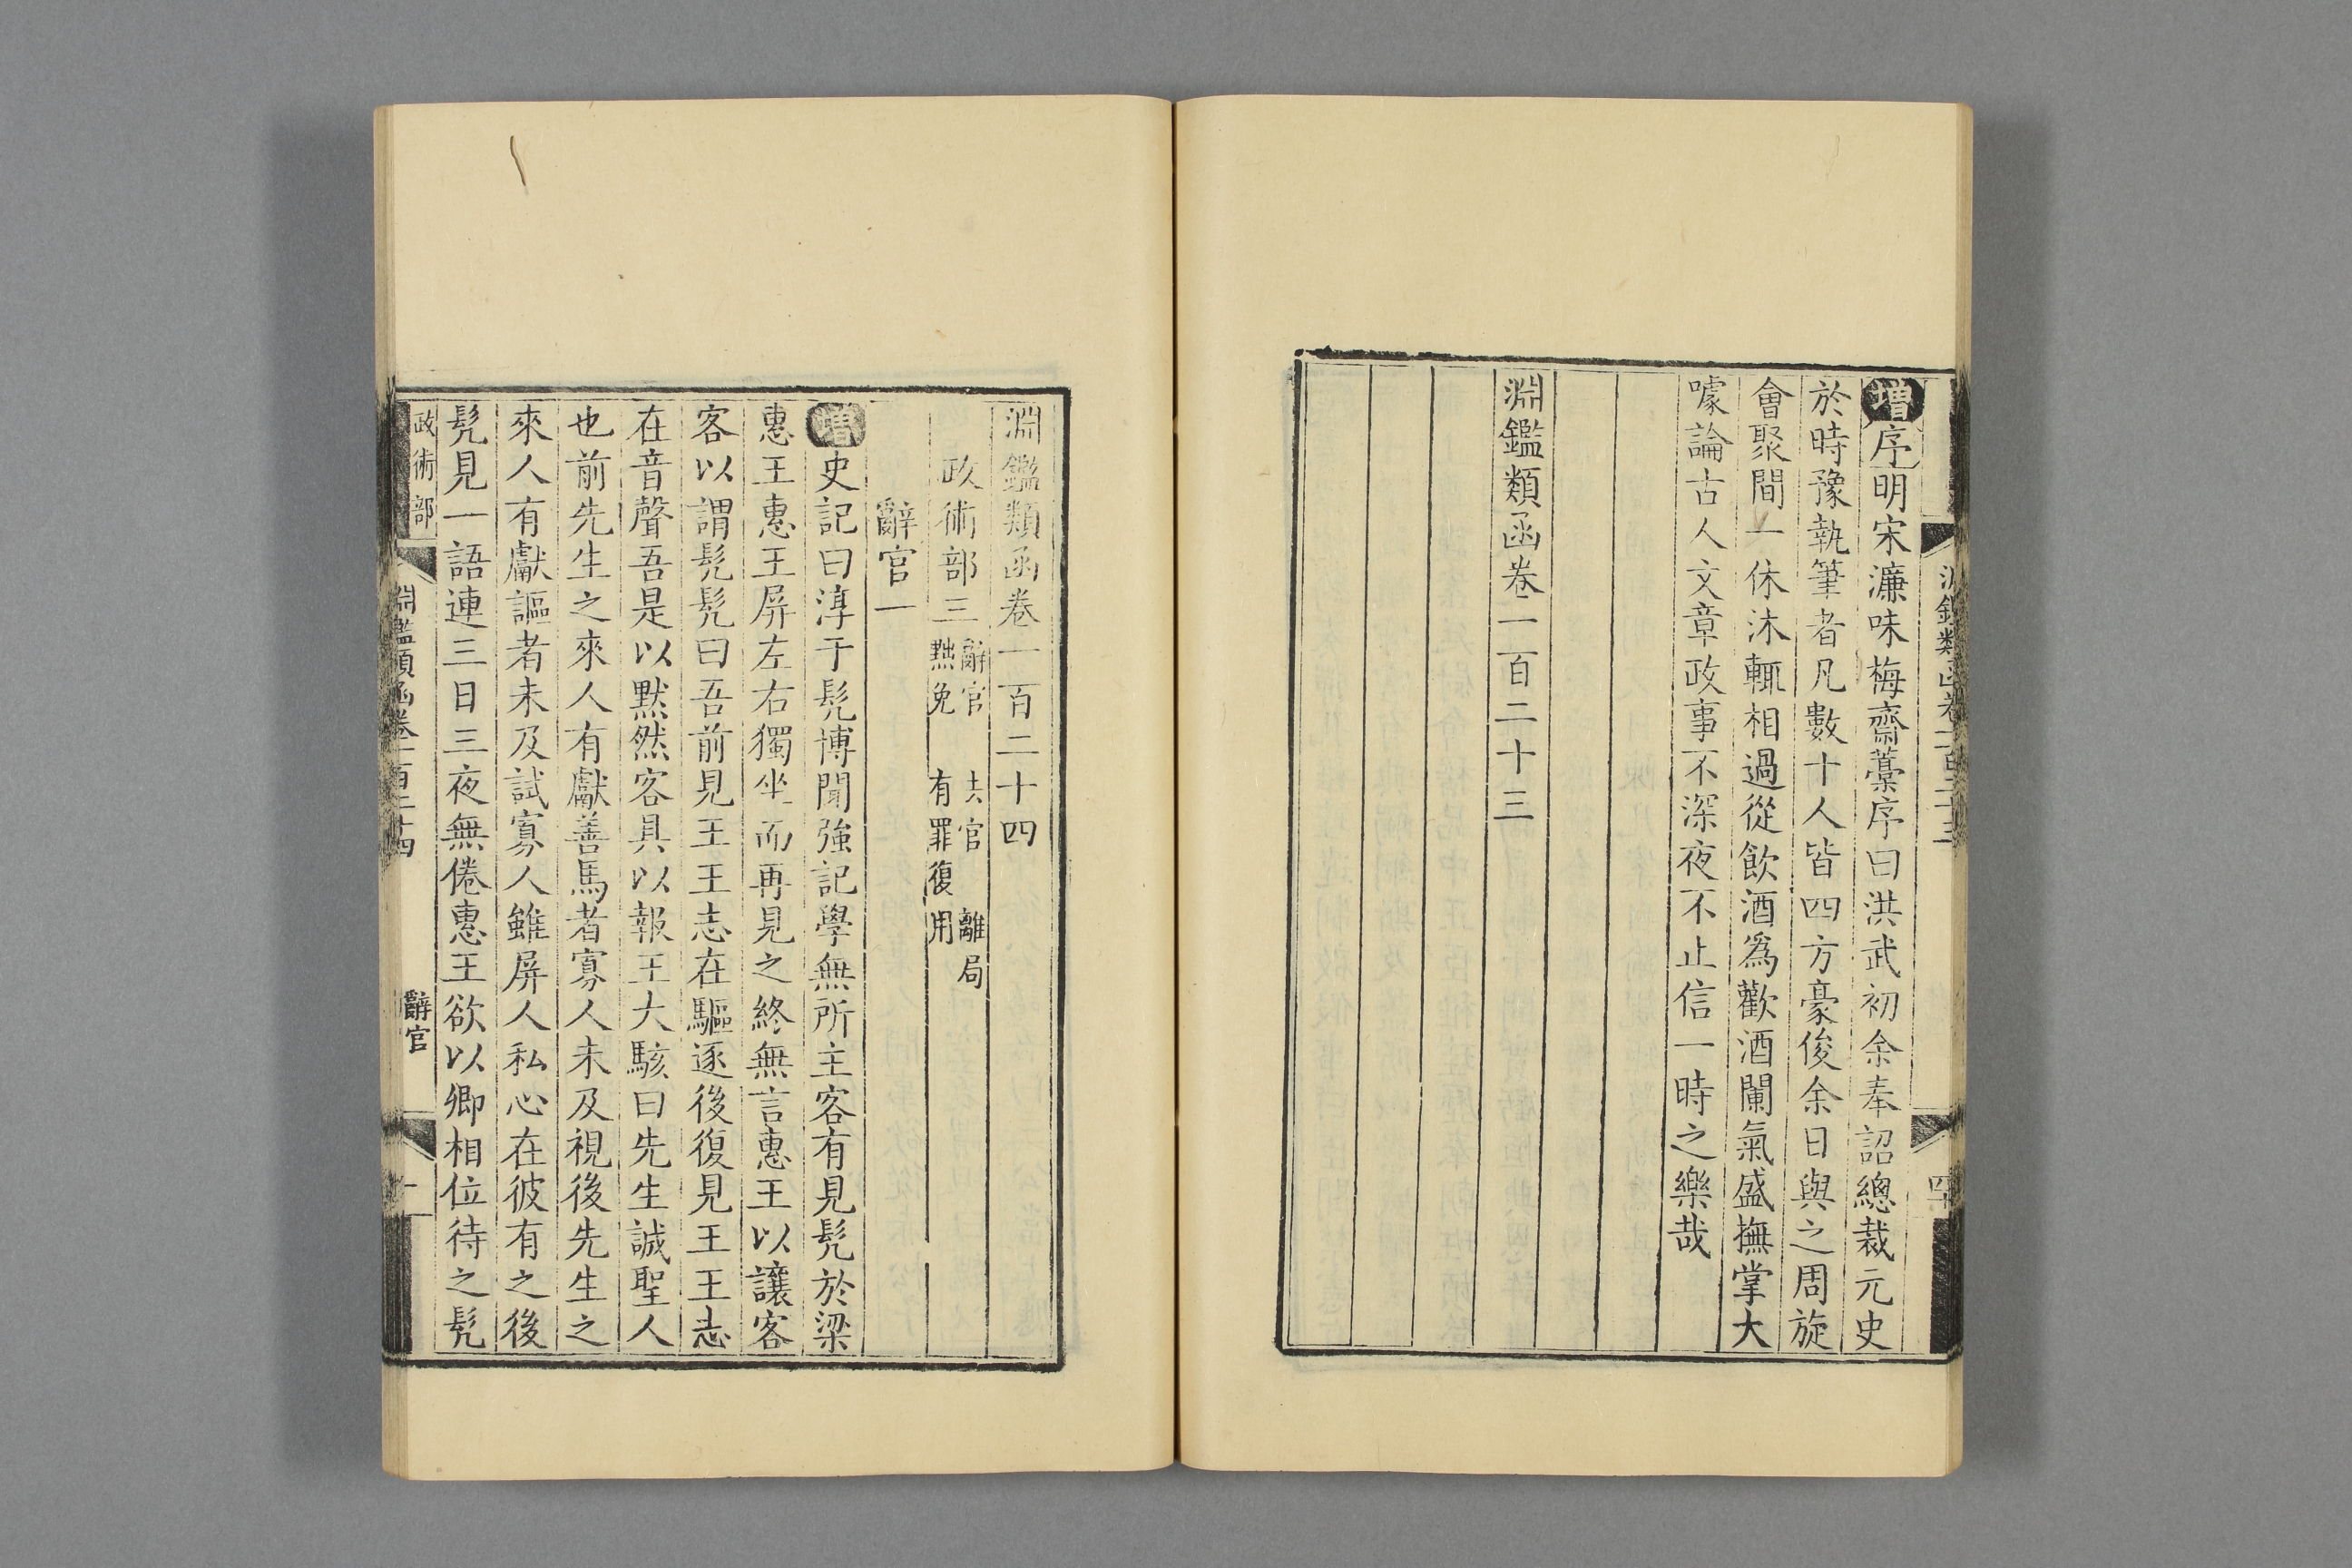 增序明宋濂味梅齋藁序曰洪武初余奉詔總裁元史
於時豫執筆者凡數十人皆四方豪俊余日與之周旋
會聚間一休沐輒相過從飲酒爲歡酒闌氣盛撫掌大
噱論古人文章政事不深夜不止信一時之樂哉
淵鑑類函卷一百二十三
淵鑑類函卷一百二十四
政術部三 辭官 去官 離局
黜免 有罪復用
辭官一
增史記曰淳于髡博聞強記學無所主客有見髡於梁
惠王惠王屏左右獨坐而再見之終無言惠王以讓客
客以謂髡髡曰吾前見王王志在驅逐後復見王王志
在音聲吾是以默然客具以報王大駭曰先生誠聖人
也前先生之來人有獻善馬者寡人未及視後先生之
來人有獻謳者未及試寡人雖屏人私心在彼有之後
髡見一語連三日三夜無倦惠王欲以卿相位待之髡
政術部 淵鑑類函卷一百二十四 辭官 一